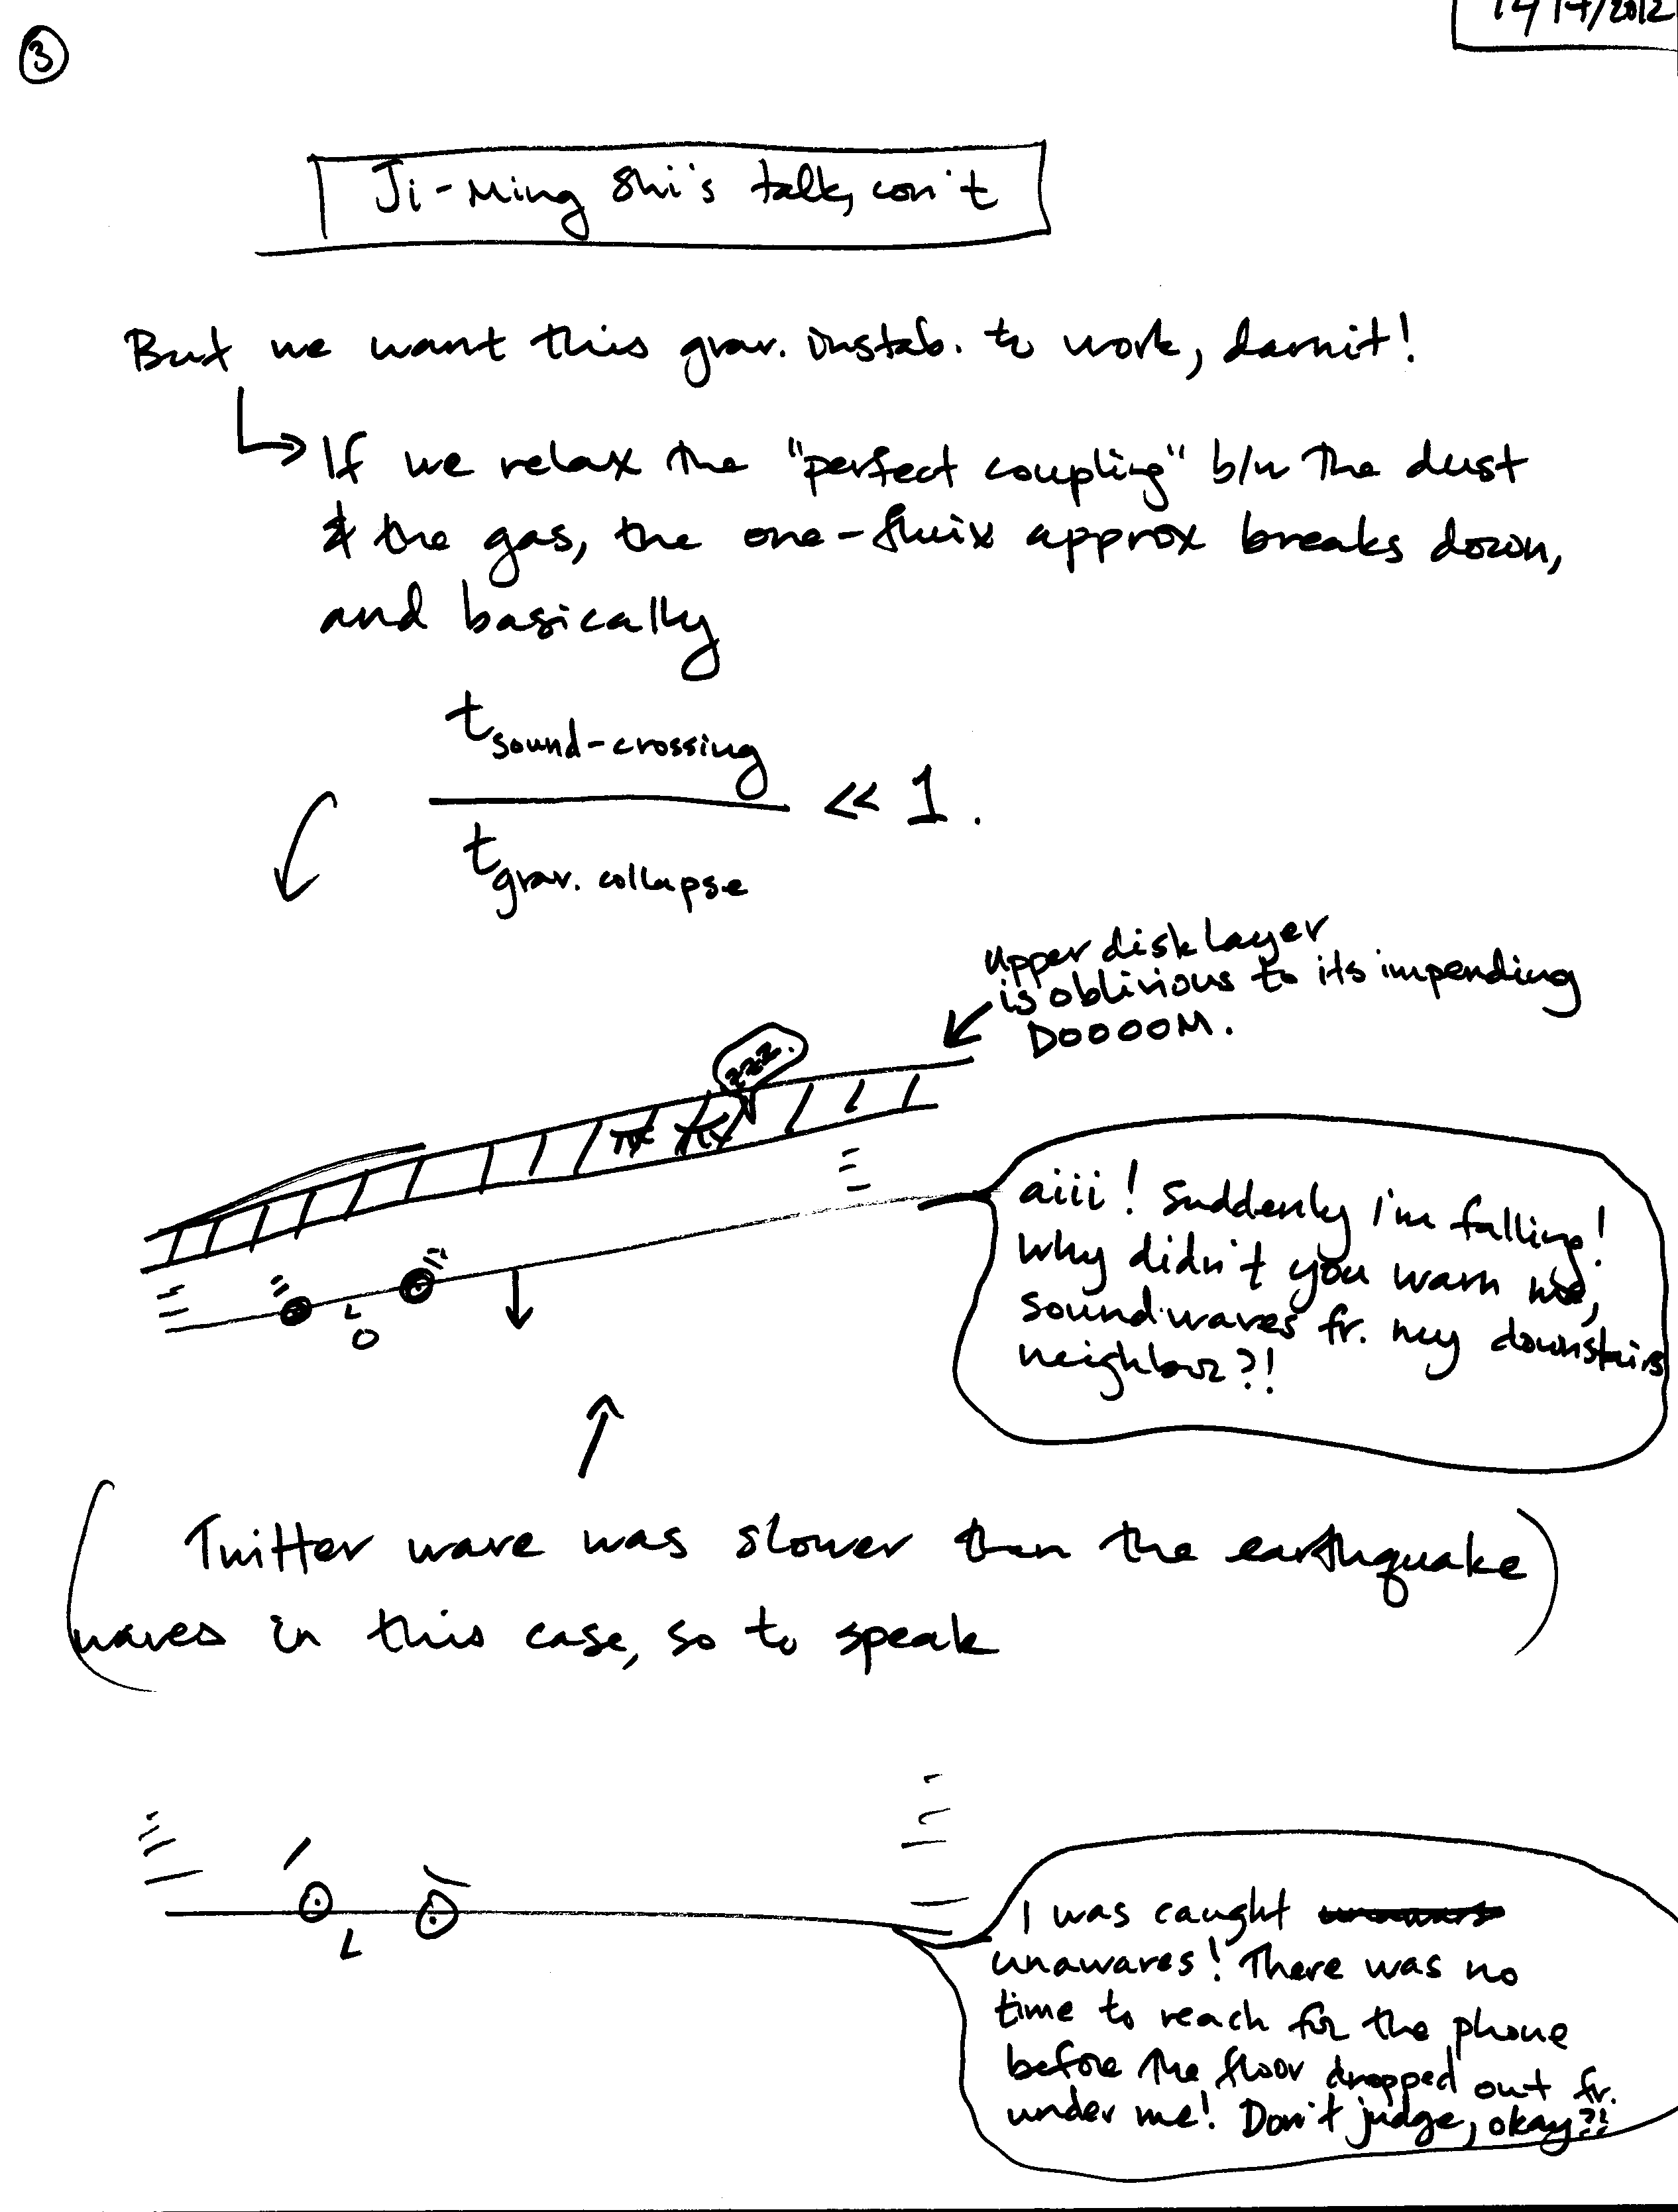 3
Ji-Ming Shi's talk, con't
But we want this grav. instab. to work, darnit!
If we relax the "perfect coupling" b/w the dust
& the gas, the one-fluix approx breaks down,
and basically
t sound-crossing
<< 1.
t grav. collapse
upper disk layer
is oblivious to its impending
DOOOOM.
zzz.
aiii! Suddenly I'm falling!
Why didn't you warn me,
sound waves fr. my downstairs
neighbor?!
Twitter wave was slower than the earthquake
waves in this case, so to speak
I was caught
unawares! There was no
time to reach for the phone
before the floor dropped out fr.
under me! Don't judge, okay?!